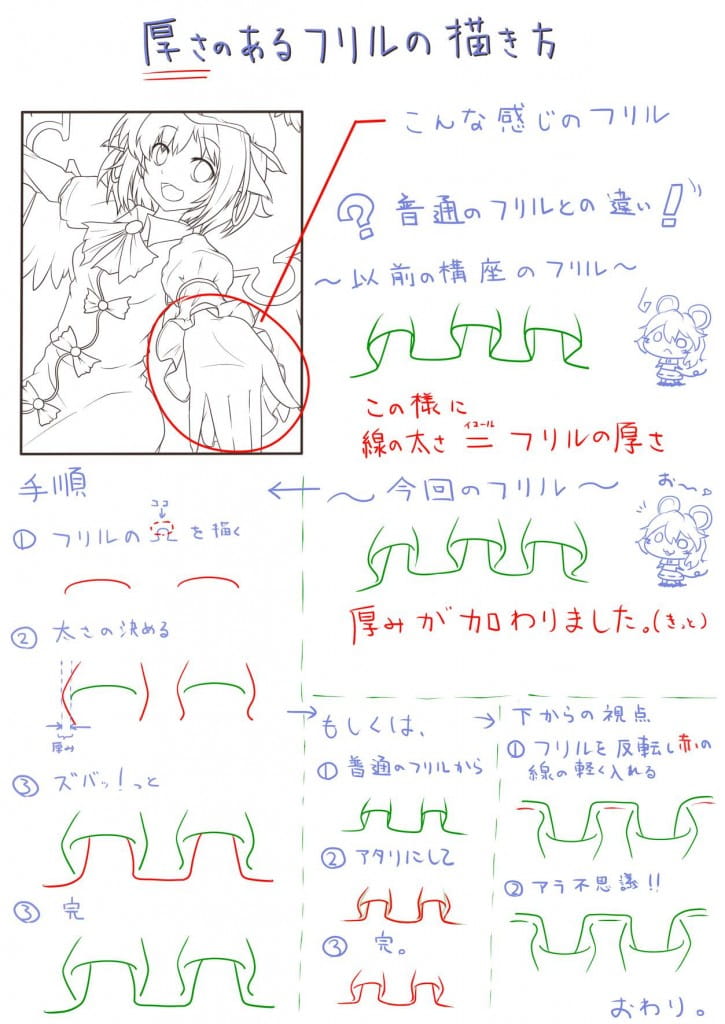 厚さのあるフリルの描き方
こんな感じのフリル
? 普通のフリルとの違い!
～以前の構座のフリル～
この様に
線の太さ イコール = フリルの厚さ
～今回のフリル～
お～。
厚みが加わりました。(きっと)
手順
ココ
① フリルの を描く
② 太さの決める
厚み
③ ズバッ!っと
③ 完
もしくは、
① 普通のフリルから
② アタリにして
③ 完。
下からの視点
① フリルを反転し赤いの
線の軽く入れる
② アラ不思議!!
おわり。